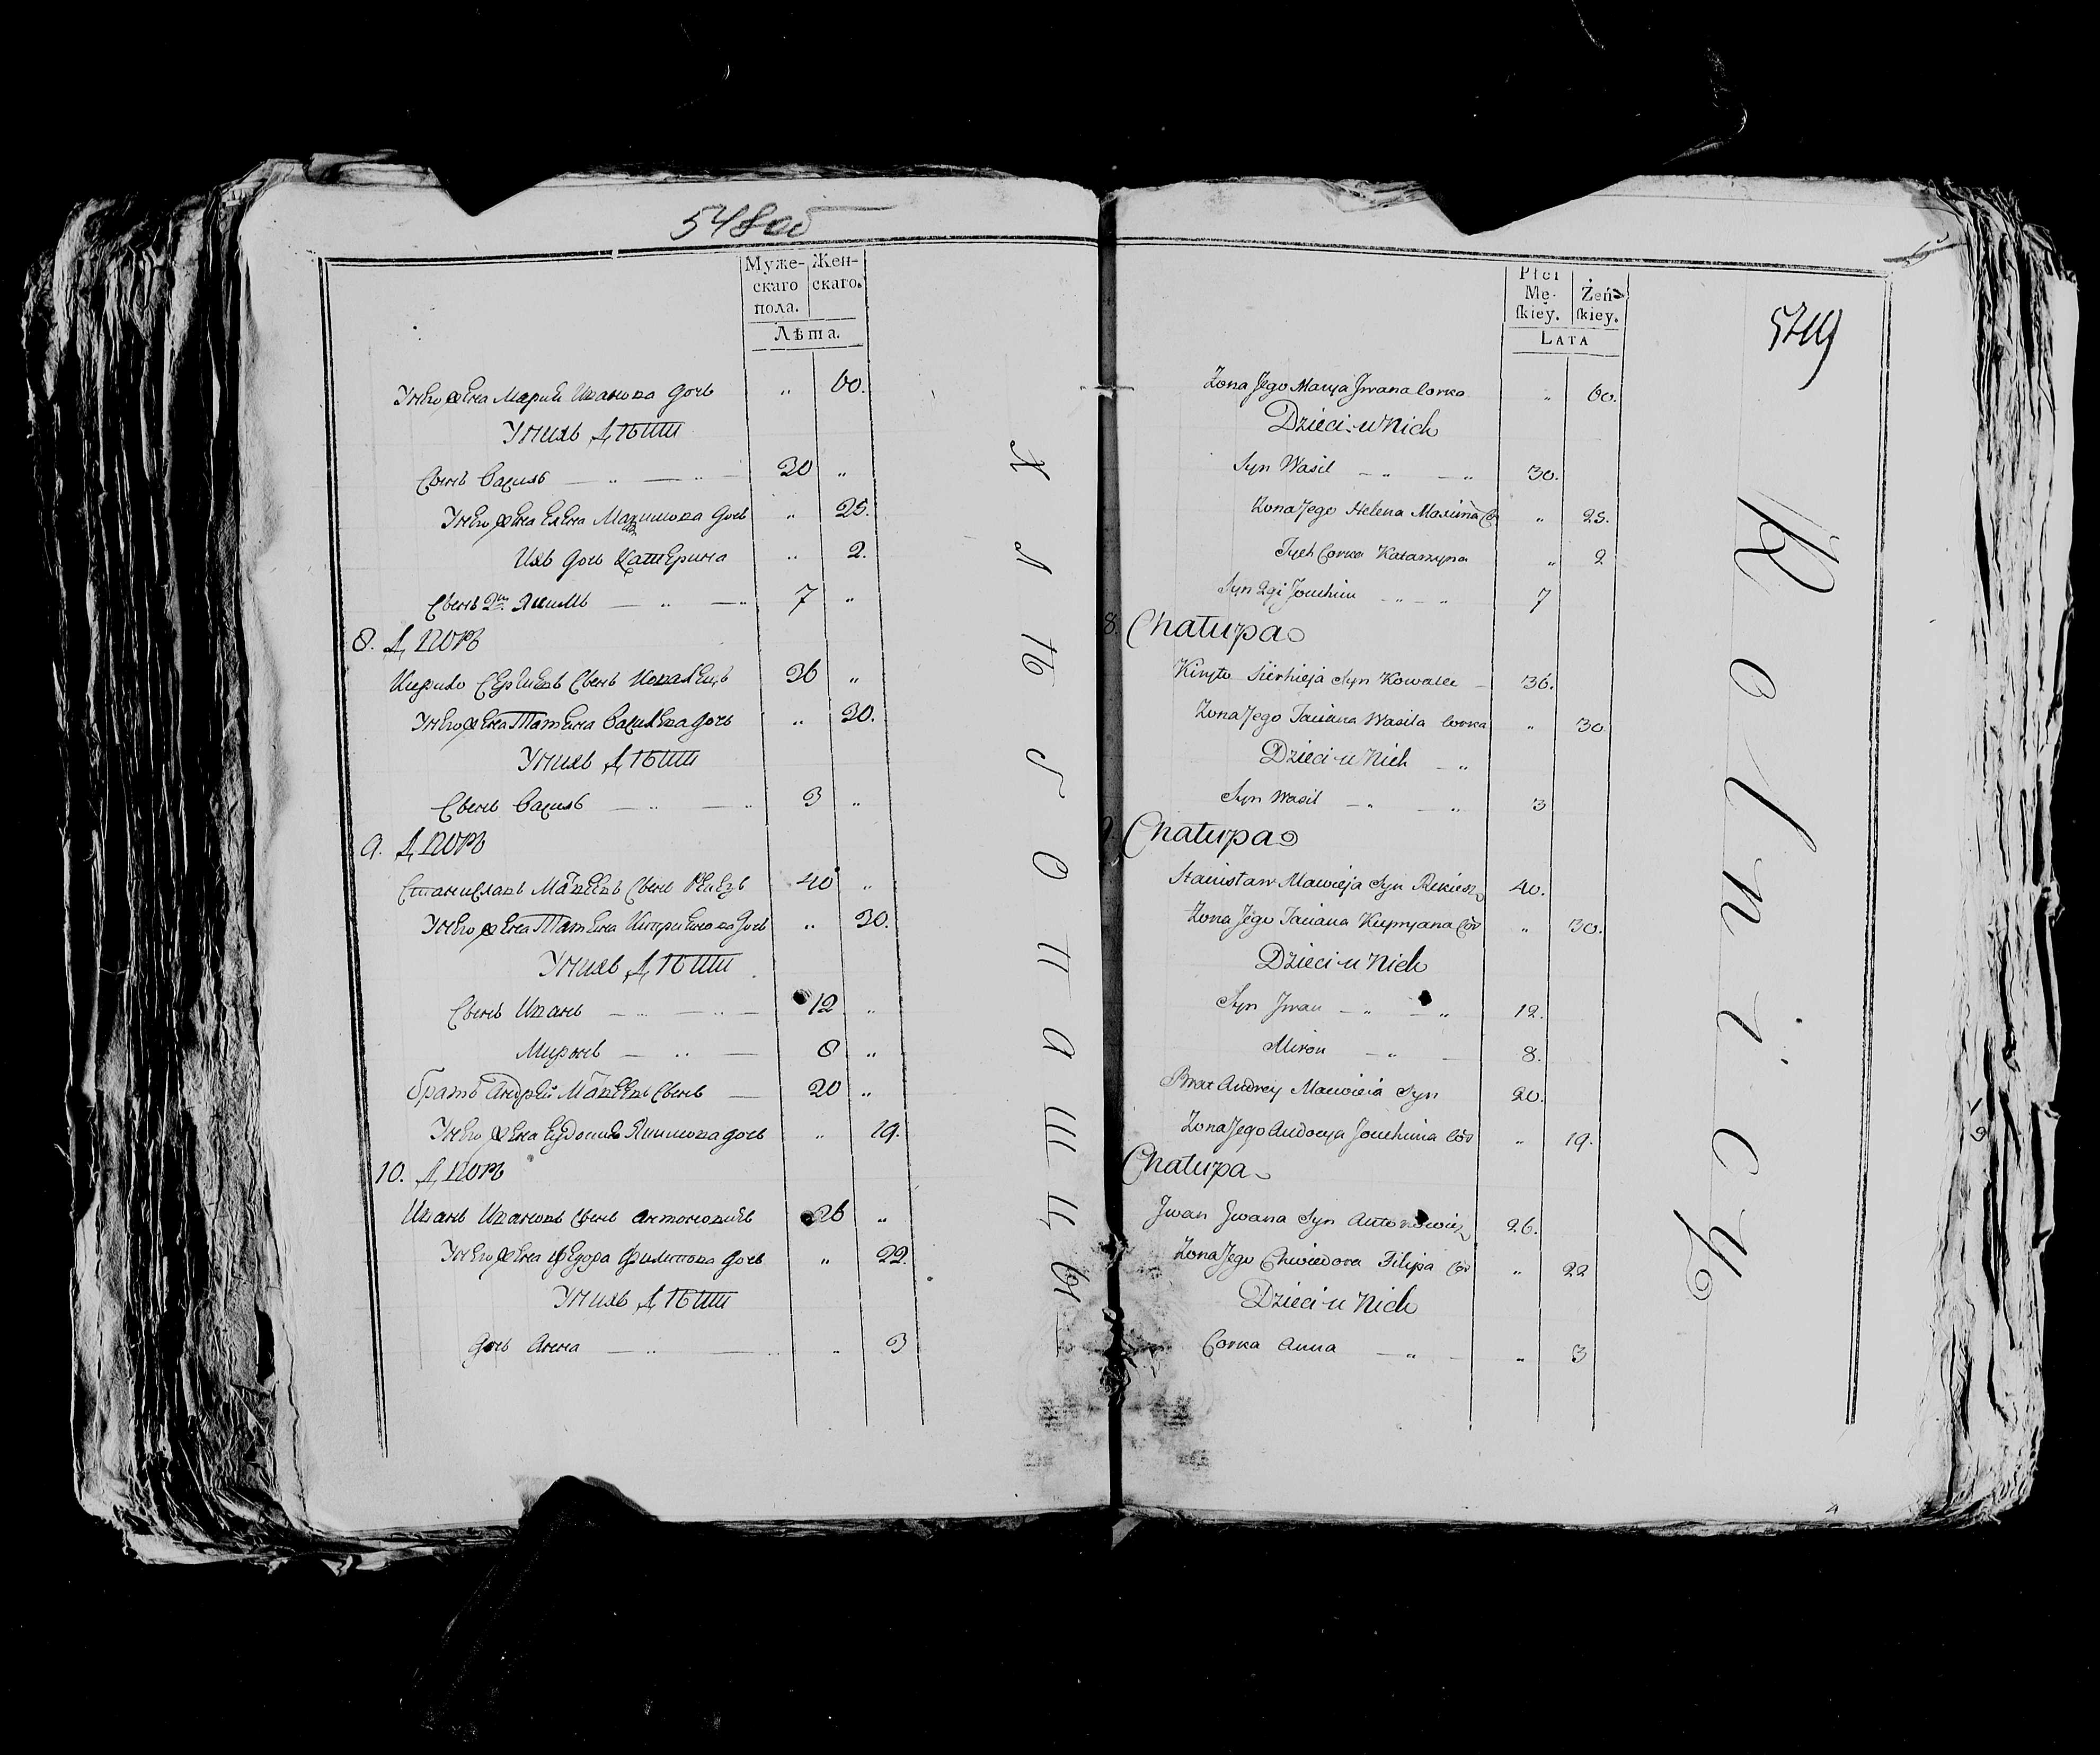 548 об
Муже-
скаго
пола.
Жен-
скаго.
Лѣта.
У него жена Мария Иванова дочь " 60.
У нихъ Дѣти
Сынъ Василь — " — " — 30 "
У него жена Елена Максимова дочь " 25.
Ихъ дочь Катерина " 2.
Сынъ 2й Якимъ — " — " 7 "
8. Дворъ
Кирило Сергиевъ Сынъ Ковалецъ 36 "
У него жена Татьяна Васильева дочь " 30.
У нихъ Дѣти
Сынъ Василь — " — " 3 "
9. Дворъ
Станиславъ Матвеевъ Сынъ 40 "
У него жена Татьяна Киприянова дочь " 30.
У нихъ Дѣти
Сынъ Иванъ — " — " — 12 "
Миронъ — " — 8 "
Братъ Андрей Матвеевъ Сынъ — 20 "
У него жена Якимова дочь " 19.
10. Дворъ
Иванъ Ивановъ Сынъ Антоновичъ 26 "
У него жена Федора Филипова дочь " 22.
У нихъ Дѣти
дочь Анна — " — " " 3
Хлѣбопашцы
Płci
Mę-
ſkiey.
Żeń-
ſkiey.
LATA
549
Zona Jego Marya Jwana Corka " 60.
Dzieci u Nich
Syn Wasil — " — " 30.
Zona Jego Helena Maxima Cor " 25.
Jych Corka Katarzyna " 2
Syn 2gi Jouchim — " — " 7
8. Chatupa
Kiryło Sierhieja Syn Kowalec — 36.
Zona Jego Taciana Wasila Corka " 30
Dzieci u Nich — "
Syn Wasil — " — " 3
9. Chatupa
Stanisław Macwieja Syn 40.
Zona Jego Taciana Kupryana Cor " 30.
Dzieci u Nich
Syn Jwan — " — " 12.
Miron — " — 8.
Brat Andrey Macwieia Syn 20.
Zona Jego Audocya Jouchima Cor " 19.
Chatupa
Jwan Jwana Syn Antonowicz 26.
Zona Jego Chwiedora Filipa Cor " 22
Dzieci u Nich
Corka Anna — " — " 3
Rolnicy